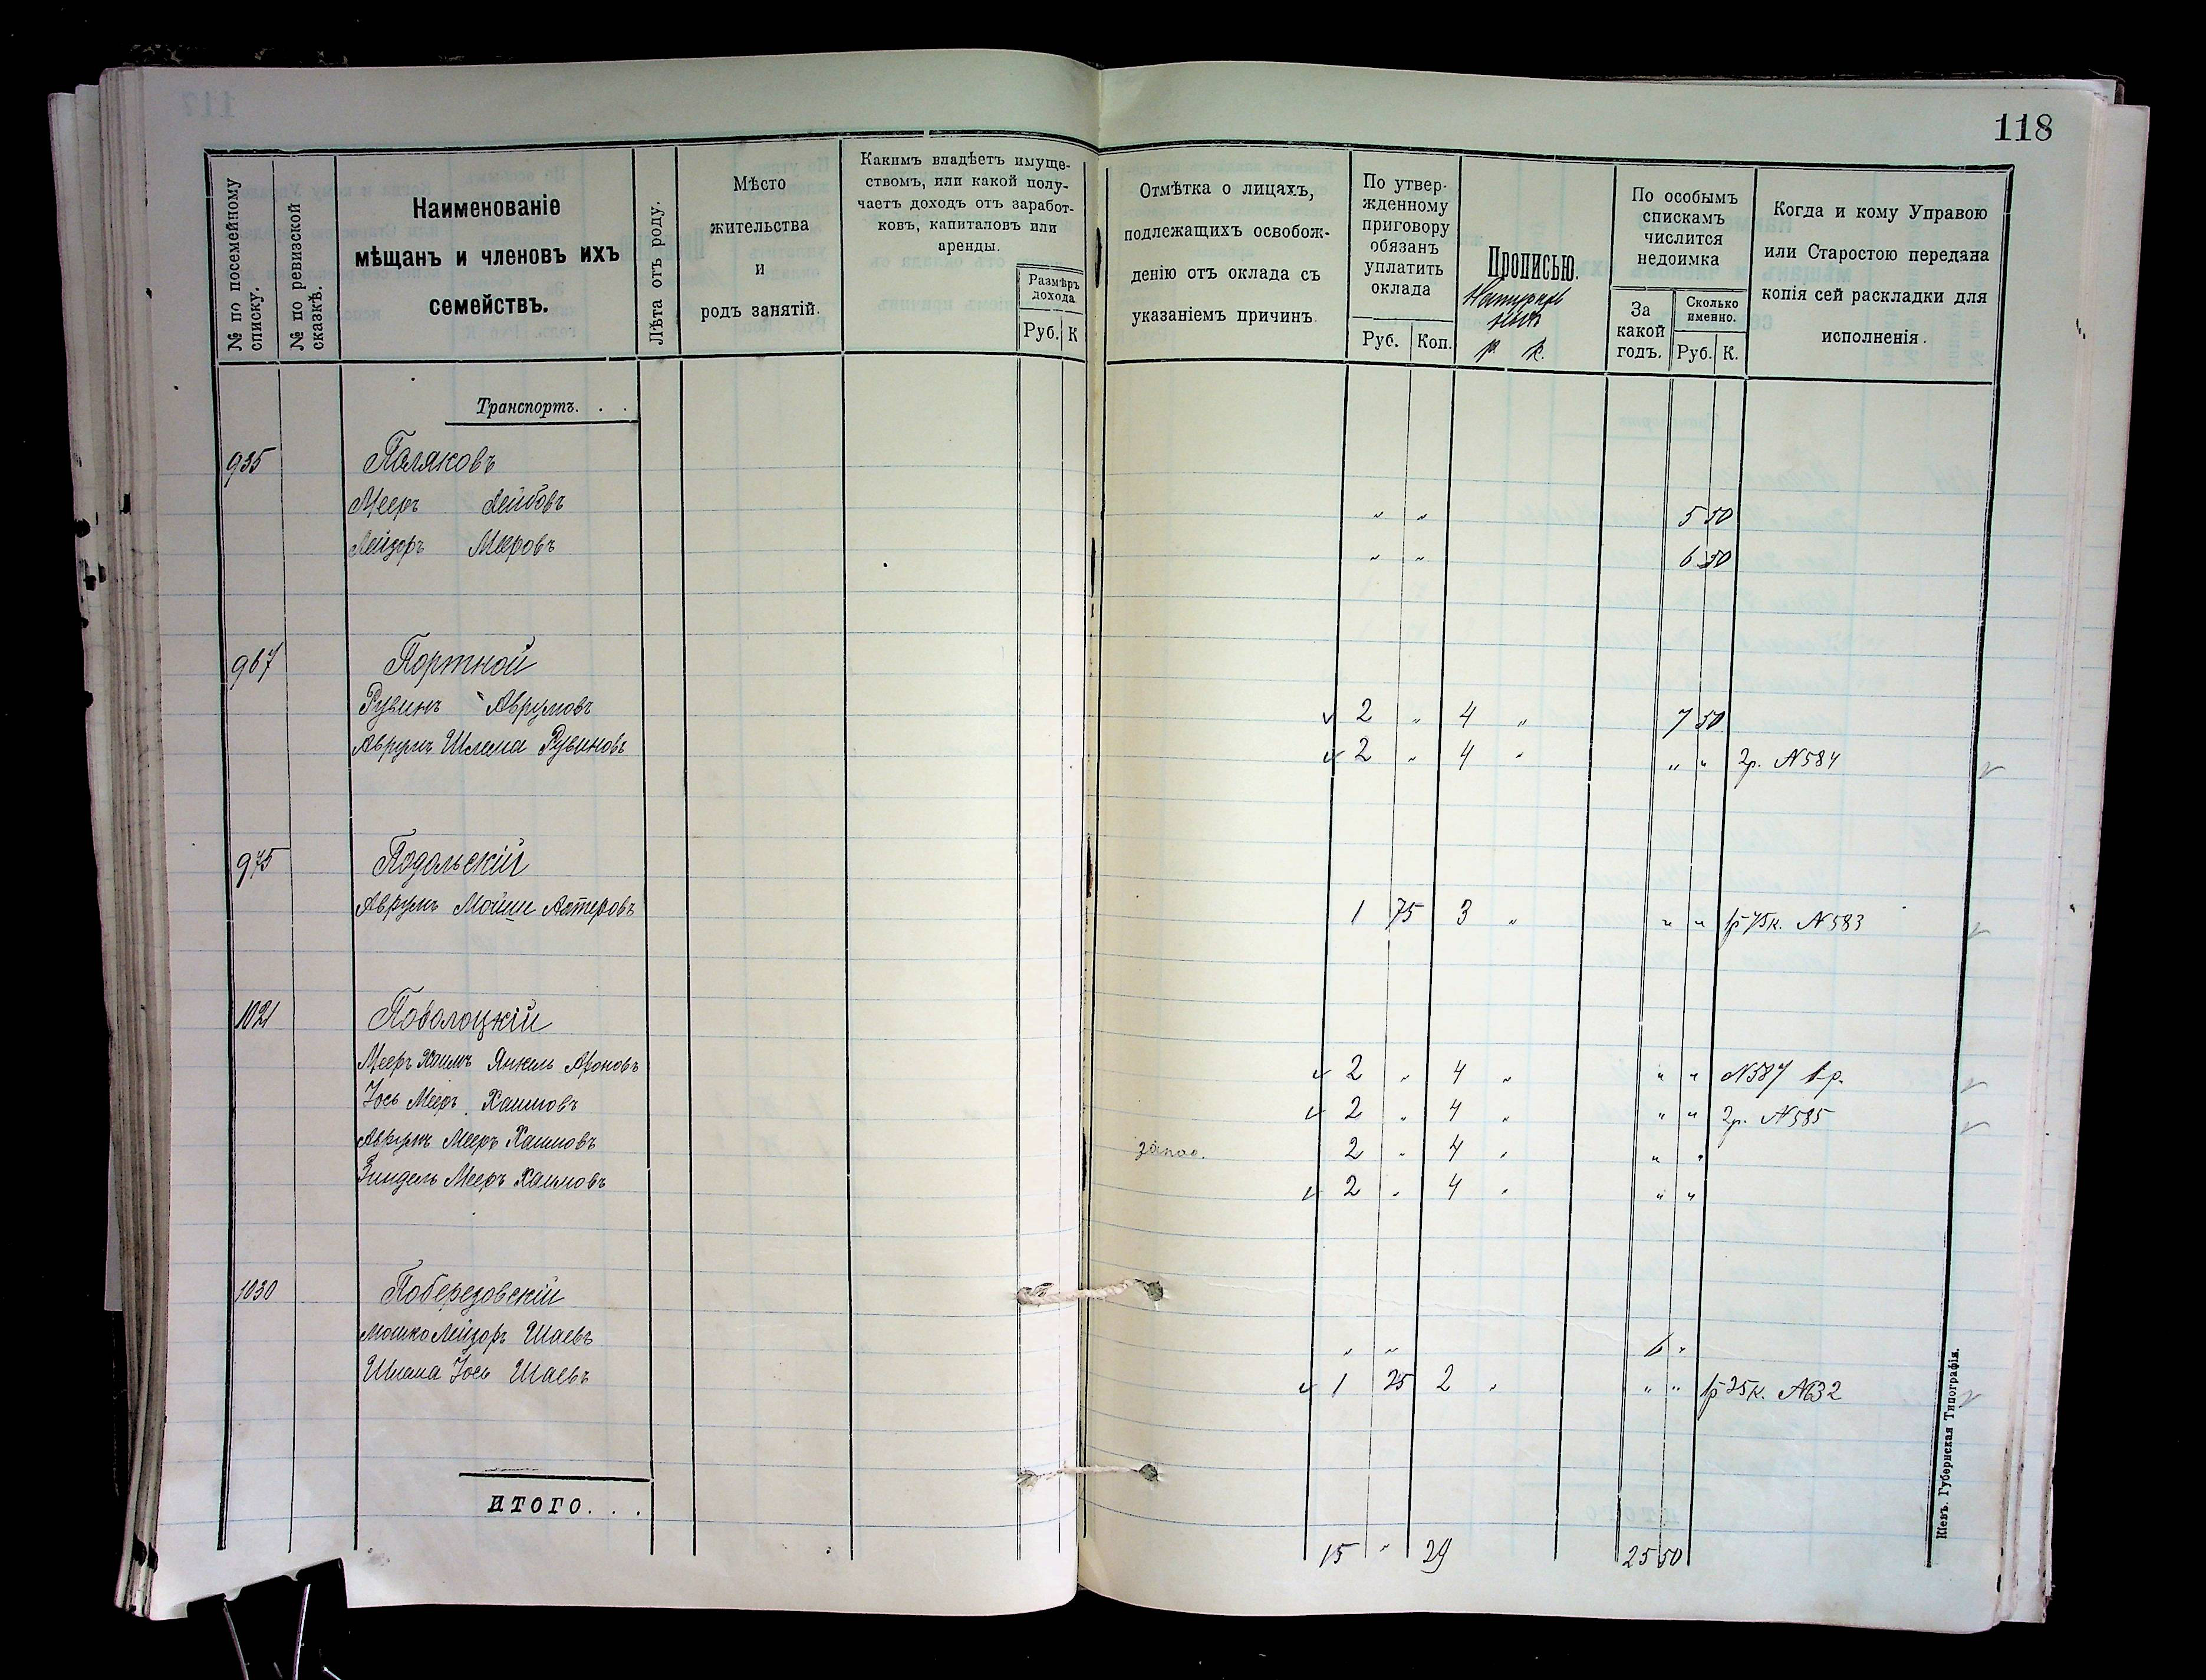 118
№ по посемейному списку.
№ по ревизской сказкѣ.
Наименованіе
мѣщанъ и членовъ ихъ
семействъ.
Лѣта отъ роду.
Мѣсто
жительства
и
родъ занятій.
Какимъ владѣетъ имуще-
ствомъ, или какой полу-
чаетъ доходъ отъ заработ-
ковъ, капиталовъ или
аренды.
Размѣръ
дохода
Руб. К
Отмѣтка о лицахъ,
подлежащихъ освобож-
денію отъ оклада съ
указаніемъ причинъ.
По утвер-
жденному
приговору
обязанъ
уплатить
оклада
Руб. Коп.
Прописью.
р. к.
По особымъ
спискамъ
числится
недоимка
За
какой
годъ.
Сколько
именно.
Руб. К.
Когда и кому Управою
или Старостою передана
копія сей раскладки для
исполненія.
Транспортъ. . .
935 Поляковъ
Мееръ Лейбовъ " " 5 50
Лейзоръ Мееровъ " " 6 50
967 Портной
Рувинъ Аврумовъ 2 " 4 " 7 50
Аврумъ Шлема Рувиновъ 2 " 4 " " " 2р. № 584
975 Подольскій
Аврумъ Мойше Алтеровъ 1 75 3 " " " 1р 75к. № 583
1021 Поволоцкій
Мееръ Хаимъ Янкель Ароновъ 2 " 4 " " " № 587 1 р.
Іось Мееръ Хаимовъ 2 " 4 " " " 2р. № 585
Аврумъ Мееръ Хаимовъ запас. 2 " 4 " " "
Зиндель Мееръ Хаимовъ 2 " 4 " " "
1030 Поберезовскій
Мошко Лейзоръ Шаевъ " " 6 "
Шлема Іось Шаевъ 1 25 2 " " " 1р 25к. № 632
ИТОГО. . .
15 " 29 25 50
Кіевъ. Губернская Типографія.